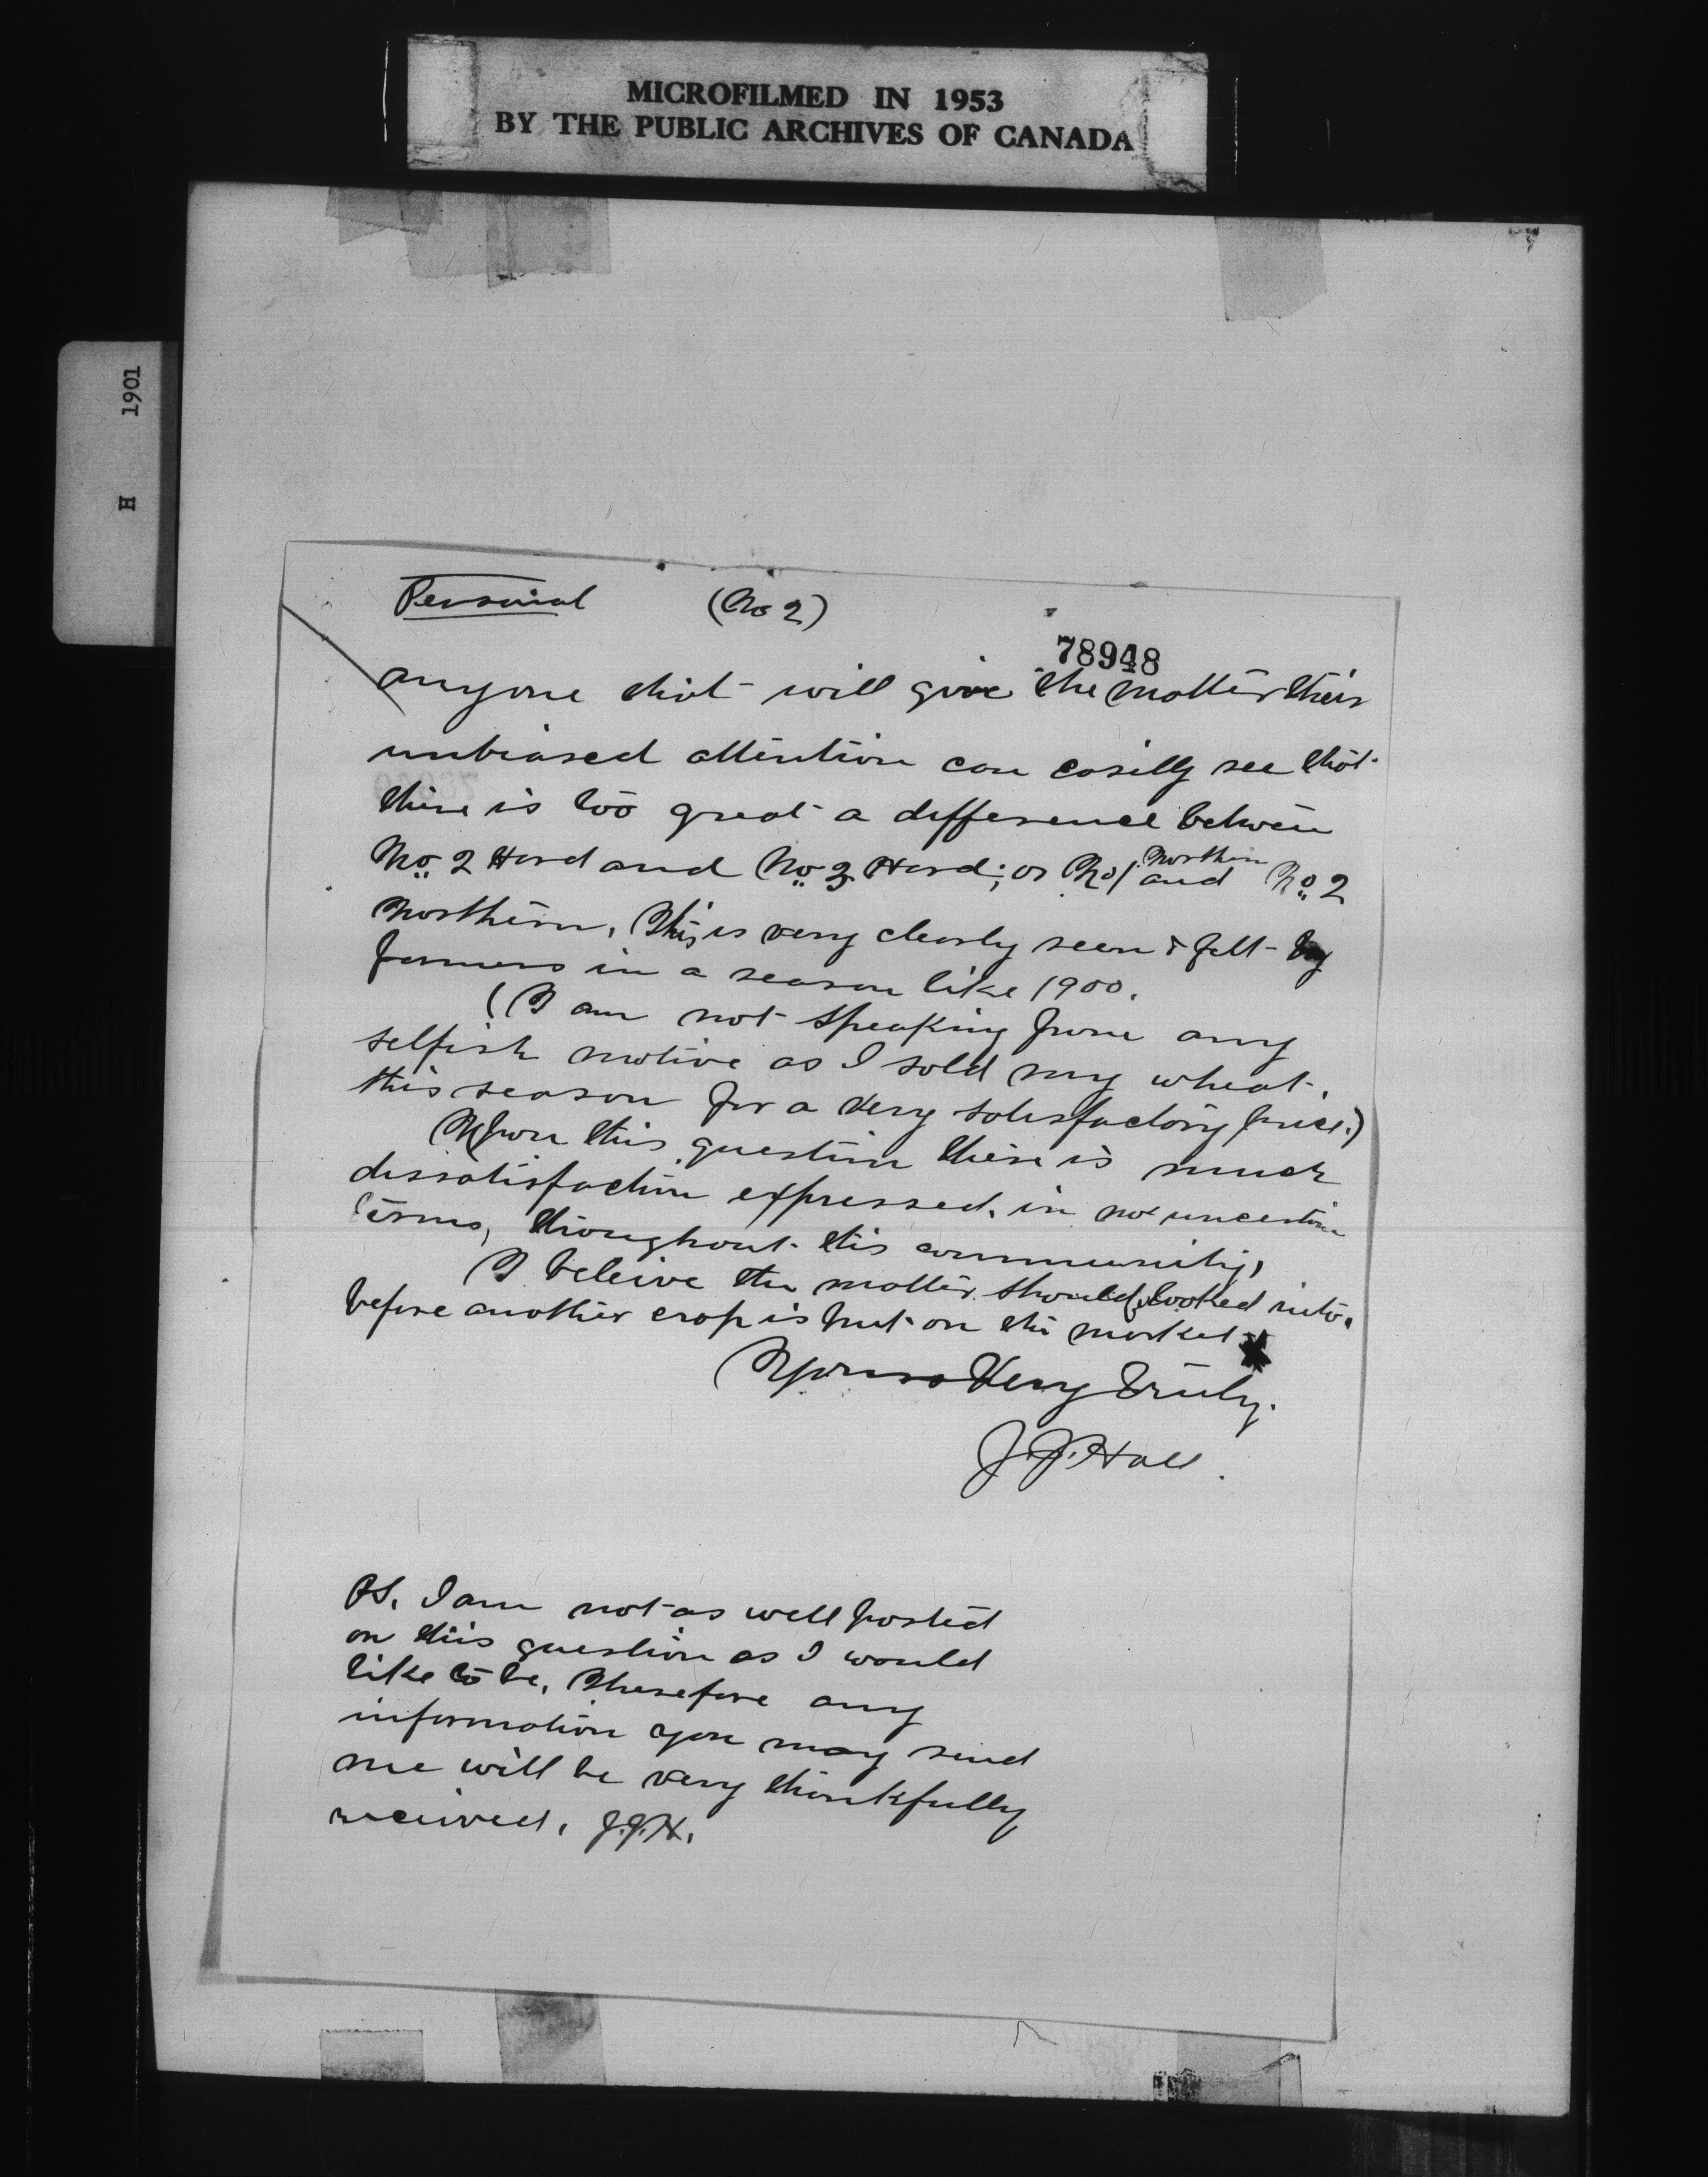 MICROFILMED IN 1953
BY THE PUBLIC ARCHIVES OF CANADA
H 1901
Personal (No 2)
78948
anyone that will give the matter their
unbiased attention can easilly see that
there is too great a difference between
No. 2 Hard and No. 3 Hard; or No 1 Northern and No. 2
Northern, This is very clearly seen & felt by
farmers in a season like 1900.
(I am not speaking from any
selfish motive as I sold my wheat
this season for a very satisfactory price.)
Upon this question there is much
dissatisfaction expressed, in no uncertain
terms, throughout this community,
I beleive the matter should be looked into,
before another crop is put on the market
Yours Very Truly.
J.J. Hall.
P.S. I am not as well posted
on this question as I would
like to be, therefore any
information you may send
me will be very thankfully
received, J.J.H.